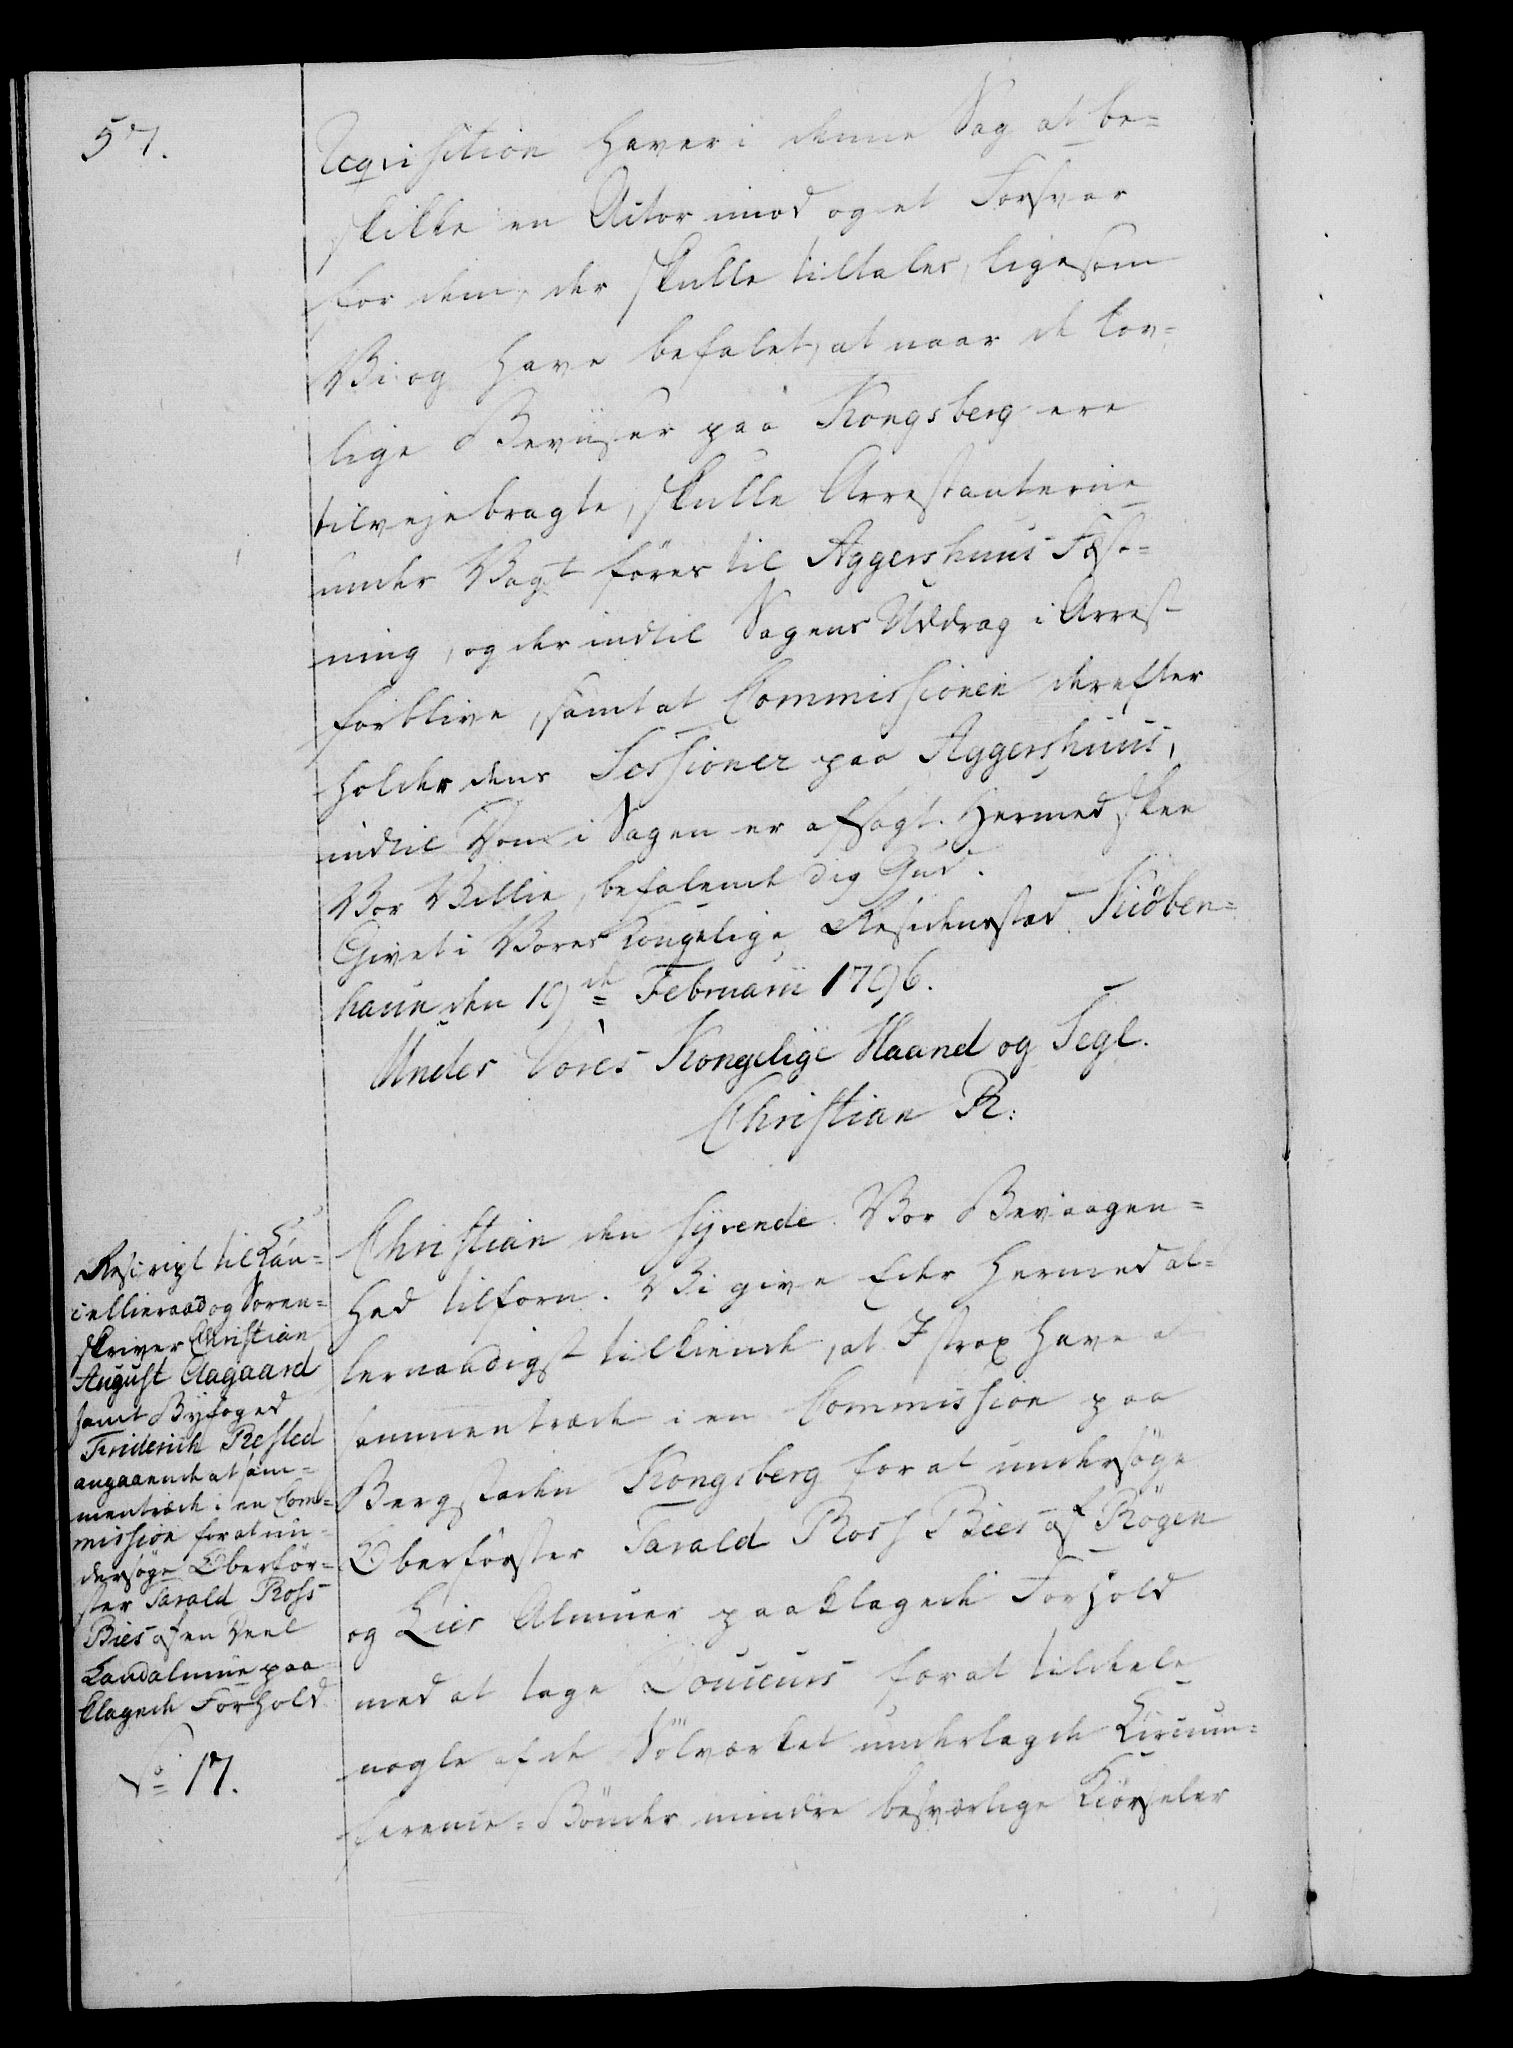 57.
Reqvisition haver i denne Sag at be-
skikke en Actor imod og et Forsvar
for dem, der skulle tiltales, ligesom
Vi og have befalet, at naar de lov-
lige Beviiser paa Kongsberg ere
tilvejebragte, skulle Arrestanterne
under Vagt föres til Aggershuus Fæst-
ning, og der indtil Sagens Uddrag i Arrest
forblive, samt at Commissionen derefter
holder dens Sessioner paa Aggershuus,
indtil Dom i Sagen er afsagt. Hermed skeer
Vor Villie, befalende dig Gud.
Givet i Vores Kongelige Residensstad Kiöben-
havn den 19de Februarii 1796.
Under Vores Kongelige Haand og Segl.
Christian R:
Rescript til Can-
cellieraad og Soren-
skriver Christian
August Aagaard
samt Byfoged
Friderich Resled
angaaende at sam-
mentræde i en Com-
mission for at un-
dersöge Oberför-
ster Tarald Ross
Bies af en Deel
Landalmue paa-
klagede Forhold
No 17.
Christian den Syvende. Vor Bevaagen-
hed tilforn. Vi give Eder hermed al-
lernaadigst tilkiende, at I strax have at
sammentræde i en Commission paa
Bergstaden Kongsberg for at undersöge
Oberförster Tarald Ross Bies af Rögen
og Lier Almuer paaklagede Forhold
med at tage Douceurs for at tildele
nogle af de Sölvværket underlagde Circum-
ference-Bönder mindre besværlige Kiörseler